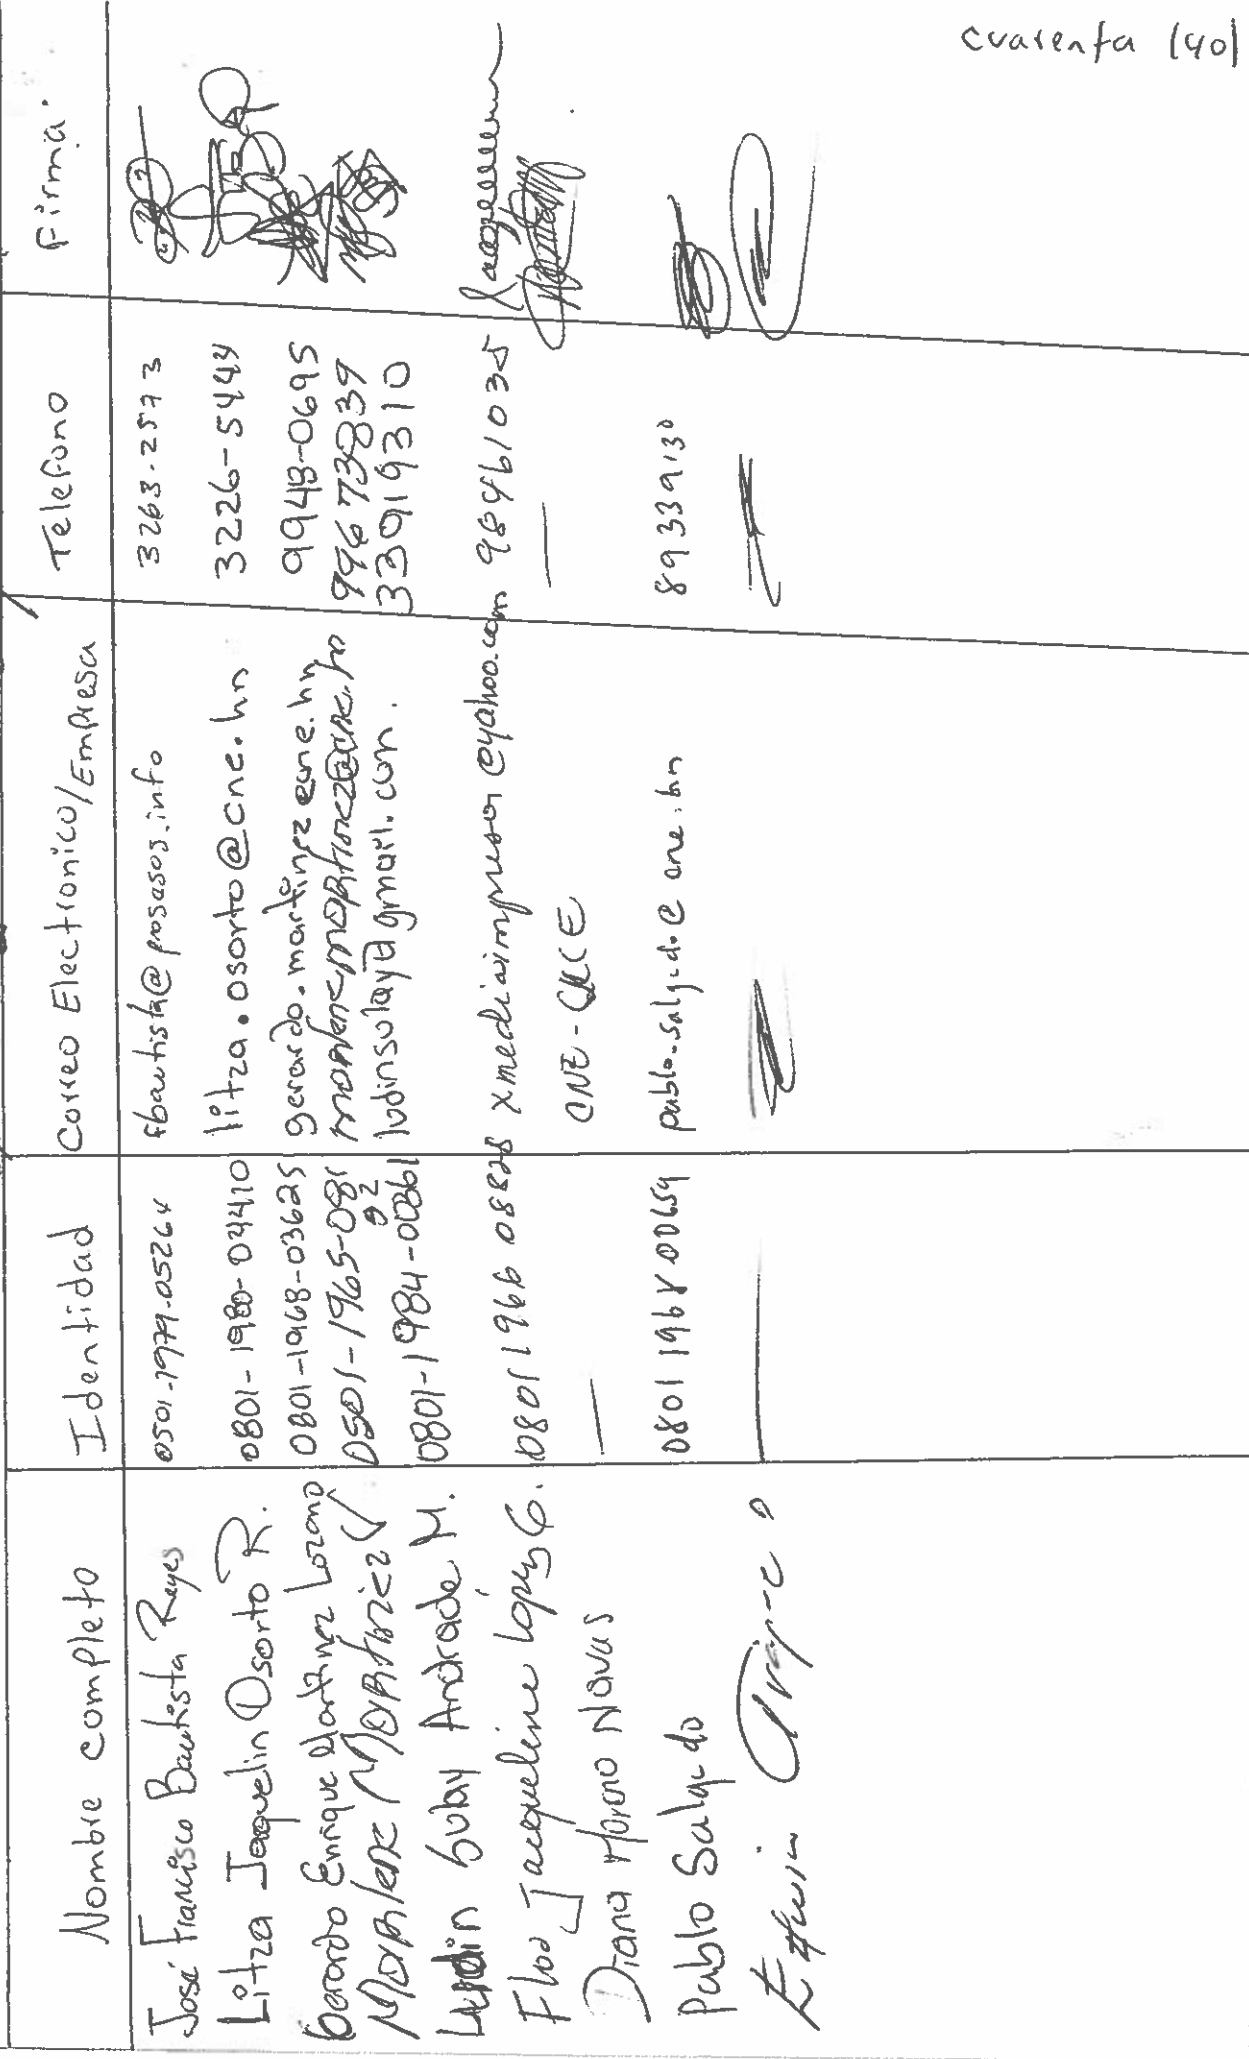 cuarenta (40)
Nombre completo Identidad Correo Electronico/Empresa Telefono Firma.
José Francisco Bautista Reyes 0501-1979-05264 fbautista@prosasos.info 3263-2573
Litza Jaquelin Osorto R. 0801-1980-04410 litza.osorto@cne.hn 3226-5444
Gerardo Enrique Martinez Lozano 0801-1968-03625 gerardo.martinez@cne.hn 9948-0695
0501-1965-081 99673839
92
Ludin Sulay Andrade M. 0801-1984-00861 ludinsulay@gmail.com. 33919310
Flor Jacqueline López G. 0801 1966 08828 xmediaimpresor@yahoo.com 98461035
Diana Moreno Navas — CNE - —
Pablo Salgado 0801 1968 00659 pablo.salgado@cne.hn 89339130